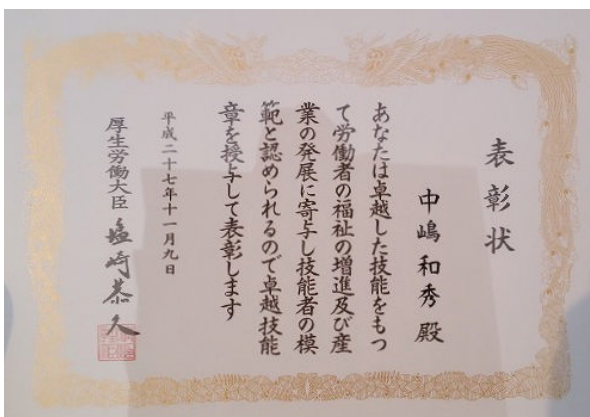 表彰状
中嶋和秀殿
あなたは卓越した技能をもつ
て労働者の福祉の増進及び産
業の発展に寄与し技能者の模
範と認められるので卓越技能
章を授与して表彰します
平成二十七年十一月九日
厚生労働大臣 塩崎恭久